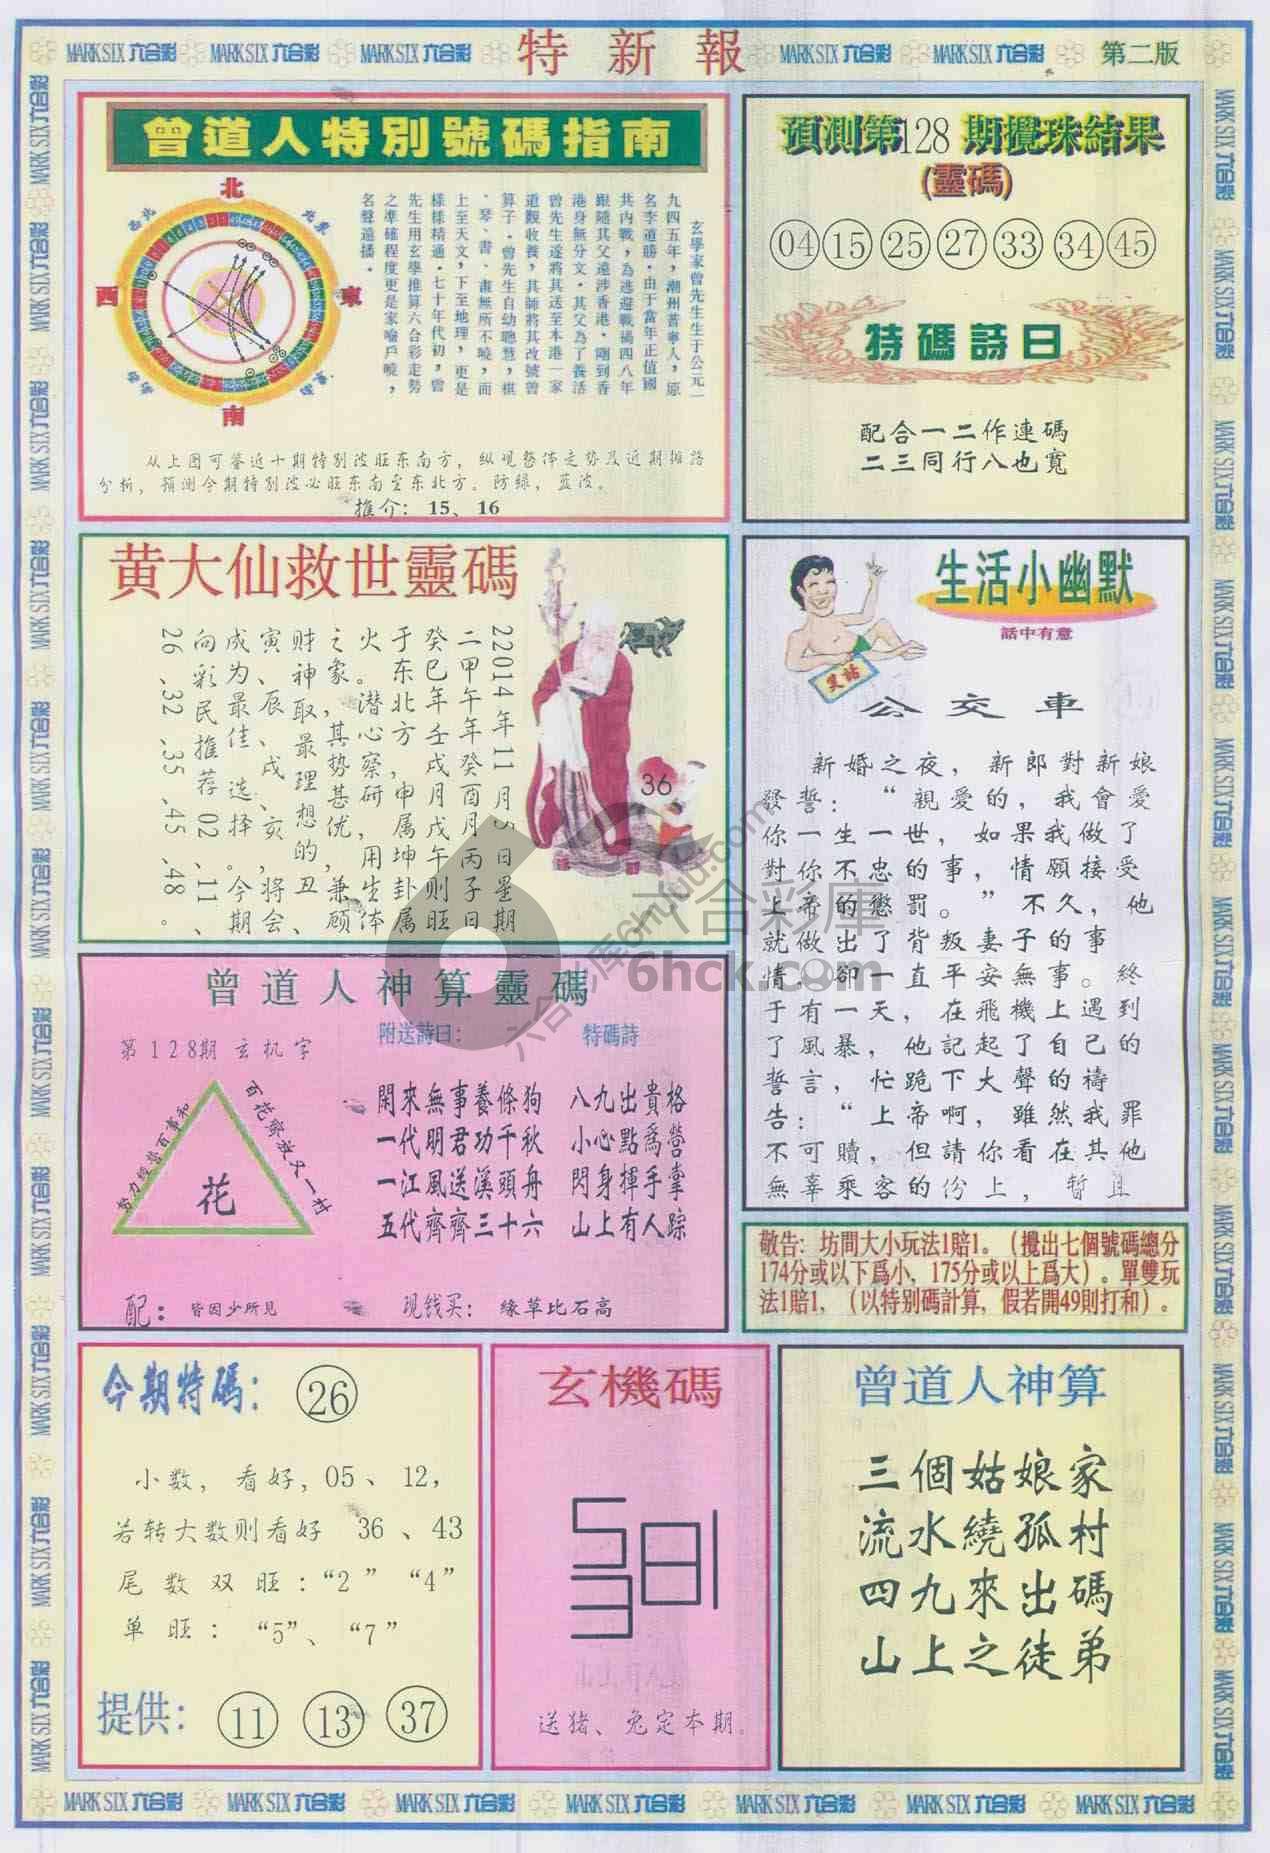 MARK SIX 六合彩 MARK SIX 六合彩 MARK SIX 六合彩
特新報
MARK SIX 六合彩 MARK SIX 六合彩
第二版
曾道人特别號碼指南
北
東
南
西
玄學家曾先生生于公元一
九四五年，潮州普寧人，原
名李道勝。由于當年正值國
共内戰，為逃避戰禍四八年
跟隨其父遠涉香港。剛到香
港身無分文，其父為了養活
曾先生遂將其送至本港一家
道觀收養，其師將其改號曾
算子。曾先生自幼聰慧，棋
、琴、書、畫無所不曉，而
上至天文，下至地理，更是
樣樣精通。七十年代初，曾
先生用玄學推算六合彩走勢
之準確程度更是家喻戶曉，
名聲遠播。
从上图可鉴近十期特别波旺东南方，纵观整体走势及近期摊路
分析，预测今期特别波必旺东南至东北方。防绿，蓝波。
推介：15、16
預測第128期攪珠結果
(靈碼)
04 15 25 27 33 34 45
特碼詩曰
配合一二作連碼
二三同行八也寬
黄大仙救世靈碼
22014年11月 日星期
二甲午年癸酉月丙子日
癸巳年壬戌月戊午则旺
于东北方，申属坤卦属
火。潜心察研，用生体
之象，其势甚优，兼顾
财神取最理想的，丑、
寅、辰、戌、亥，将会
成为最佳选择。今期
向彩民推荐02、11、
26、32、35、45、48。
36
生活小幽默
話中有意
笑話
公交車
新婚之夜，新郎對新娘
發誓：“親愛的，我會愛
你一生一世，如果我做了
對你不忠的事，情願接受
上帝的懲罰。”不久，他
就做出了背叛妻子的事
情，卻一直平安無事。終
于有一天，在飛機上遇到
了風暴，他記起了自己的
誓言，忙跪下大聲的禱
告：“上帝啊，雖然我罪
不可贖，但請你看在其他
無辜乘客的份上，暫且
六合彩庫
6hck.com
六合彩库6huud.com
曾道人神算靈碼
第128期 玄机字
努力經營百事和
百花齊放又一村
花
附送詩曰：
閑來無事養條狗
一代明君功千秋
一江風送溪頭舟
五代齊齊三十六
特碼詩
八九出貴格
小心點爲營
閃身揮手掌
山上有人踪
配：皆因少所見
现钱买：緣草比石高
敬告：坊間大小玩法1賠1。（攪出七個號碼總分
174分或以下爲小，175分或以上爲大）。單雙玩
法1賠1，（以特别碼計算，假若開49則打和）。
今期特碼：26
小数，看好，05、12，
若转大数则看好 36、43
尾数双旺：“2” “4”
单旺：“5”、“7”
提供：11 13 37
玄機碼
送猪、兔定本期。
曾道人神算
三個姑娘家
流水繞孤村
四九來出碼
山上之徒弟
MARK SIX 六合彩 MARK SIX 六合彩 MARK SIX 六合彩 MARK SIX 六合彩 MARK SIX 六合彩 MARK SIX 六合彩 MARK SIX 六合彩